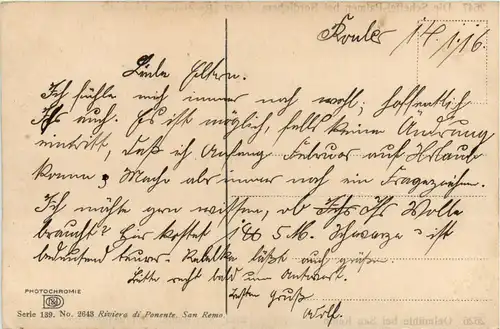 14.1.16.
Liebe Eltern.
Ich fühle mich immer noch wohl, hoffentlich
Ihr auch. Es ist möglich, falls keine Ändrung
eintritt, daß ich Anfang Februar auf Urlaub
komme, als immer noch ein Fragezeichen.
Ich möchte gern wissen, ob Ihr Wolle
braucht? Hier kostet 5 M. Schwarze ist
bedeutend teurer. läßt auch grüßen.
Bitte recht bald um Antwort.
Besten Gruß
PHOTOCHROMIE
Serie 139. No. 2643 Riviera di Ponente. San Remo.